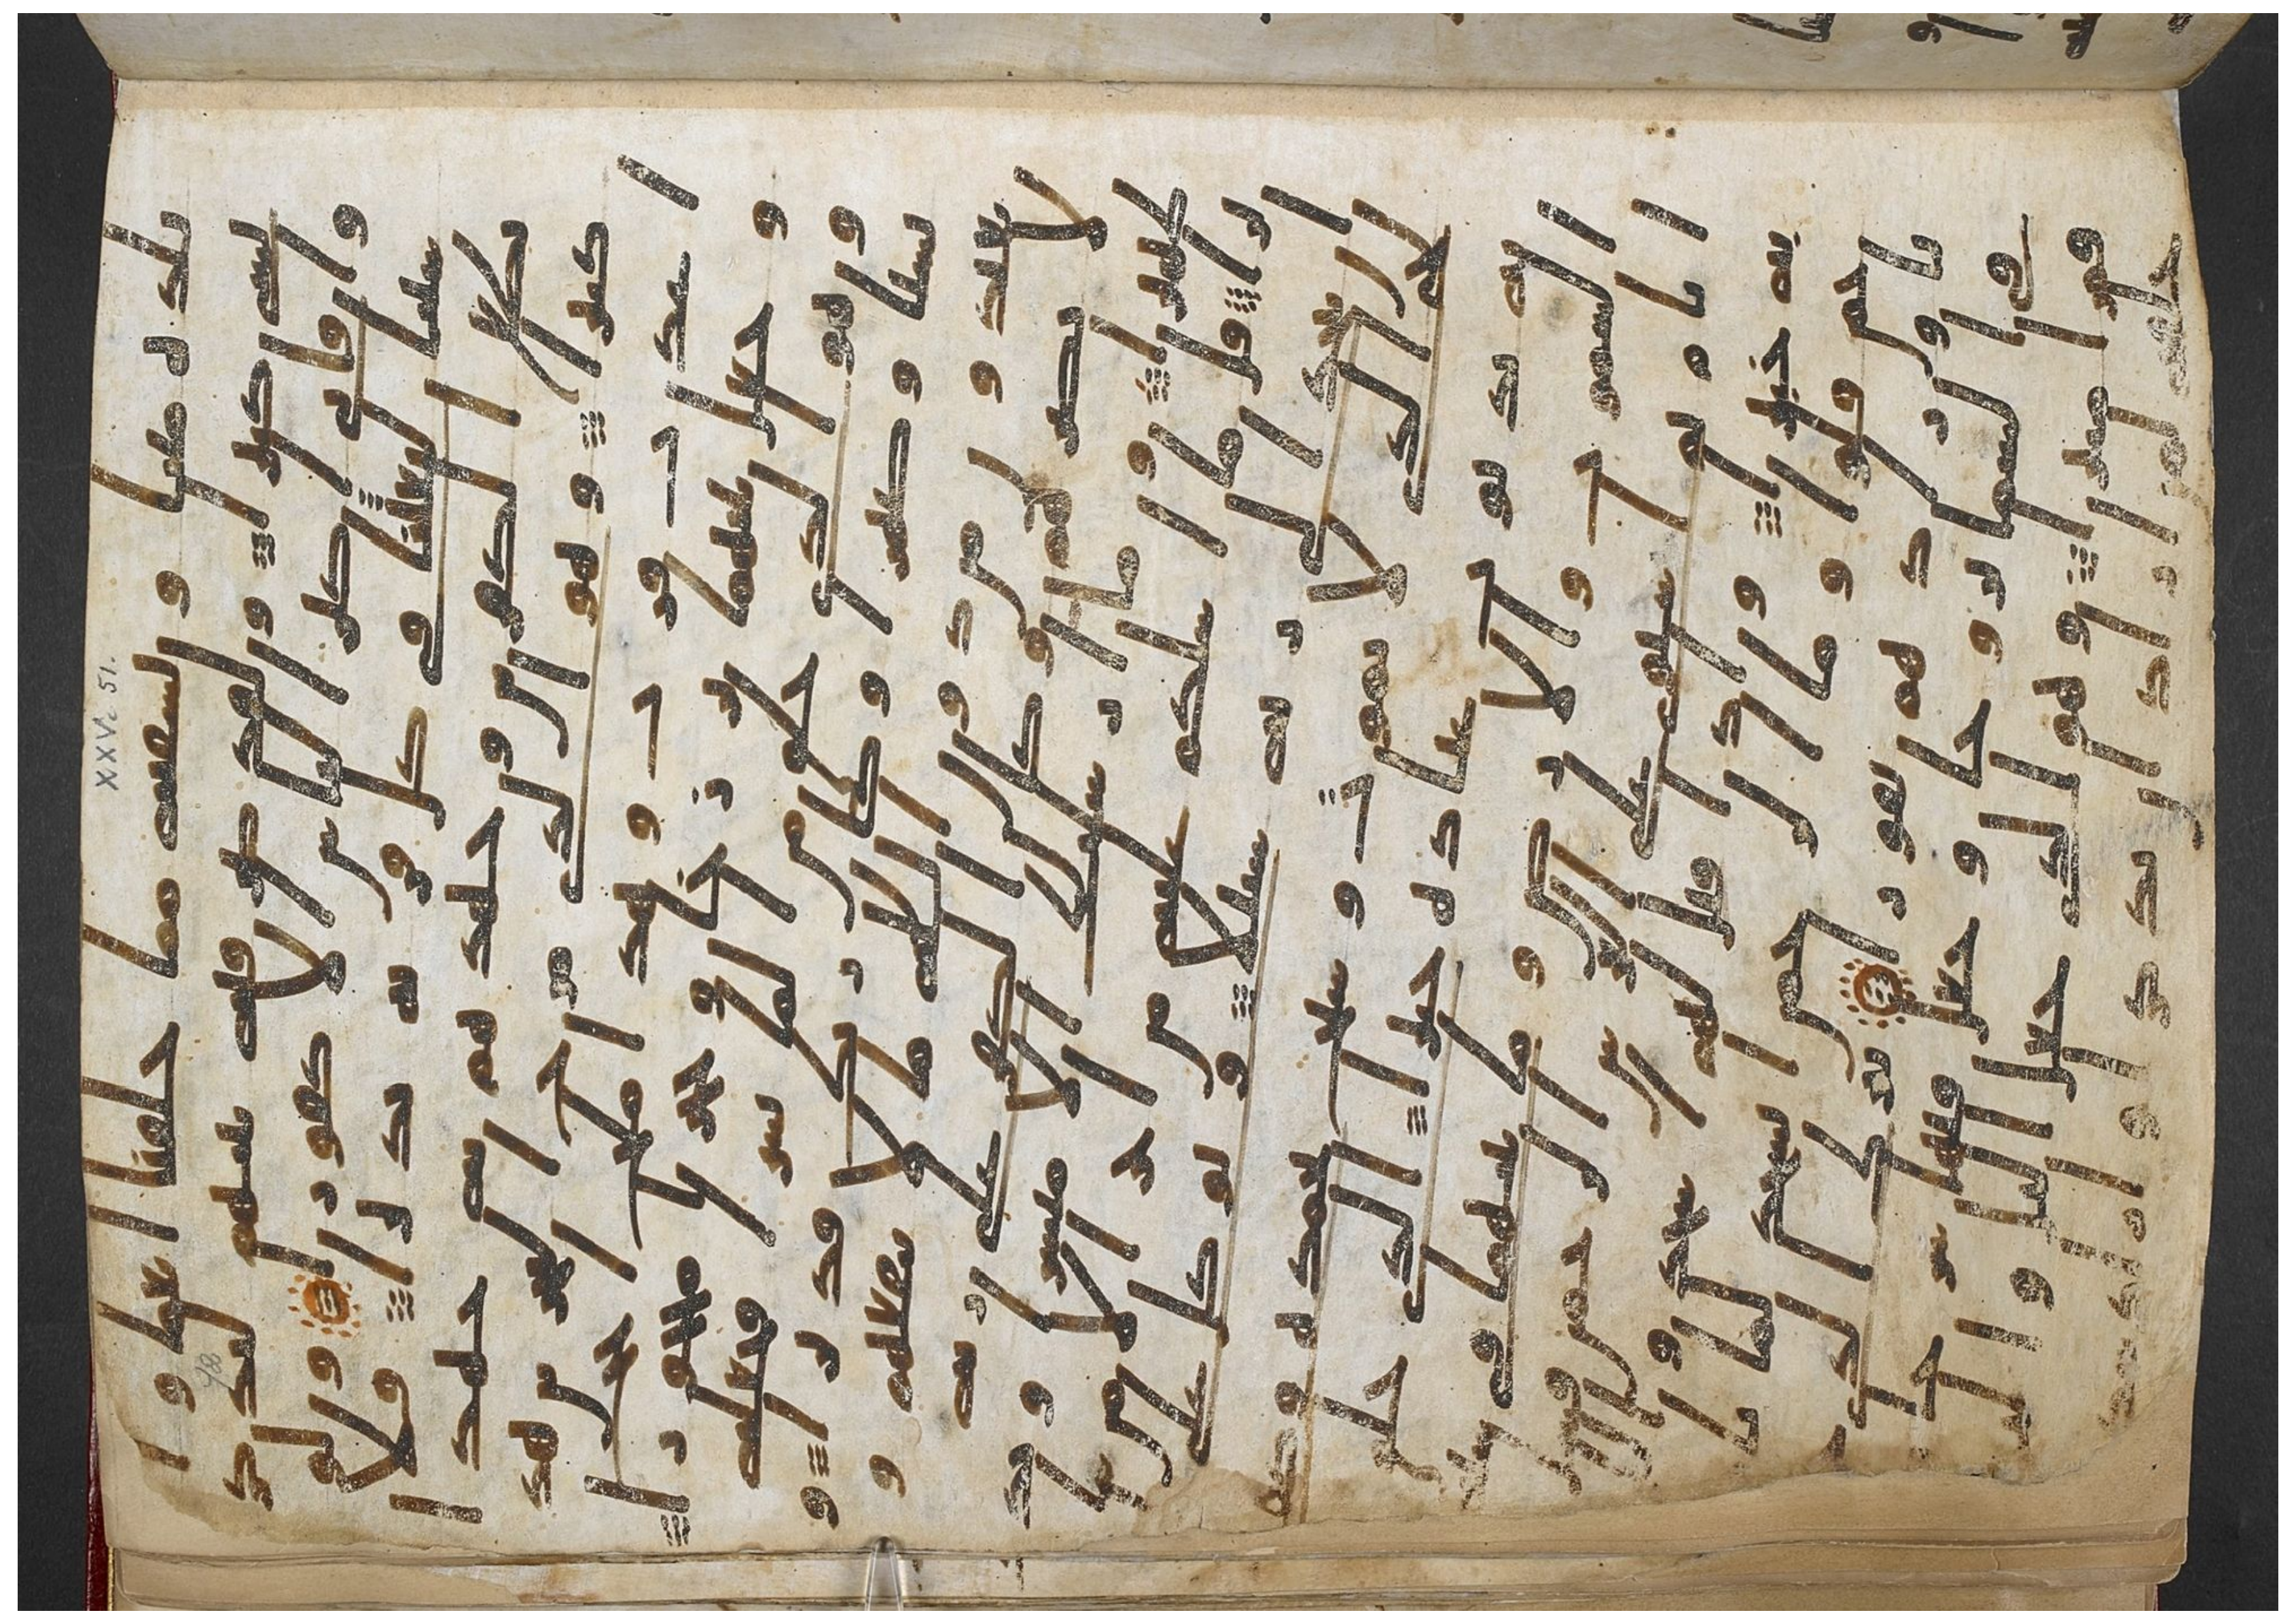 بلده ميتا و نسقيه مما خلقنا انعما و ا
نسى كثيرا و لقد صرفنه بينهم ليذكر
وا فابى اكثر الناس الا كفورا و لو
شئنا لبعثنا فى كل قريه نذيرا فلا
تطع الكفرين و جهدهم به جهدا
كبيرا و هو الذى مرج البحرين هذ
ا عذب فرات و هذا ملح اجاج
و جعل بينهما برزخا و حجرا محجورا
و هو الذى خلق من الما بشرا فجعله
نسبا و صهرا و كان ربك قديرا و
يعبدون من دون الله ما لا ينفعهم و
لا يضرهم و كان الكفر على ربه
ظهيرا و ما ارسلنك الا مبشرا و نذ
يرا قل ما اسلكم عليه من اجر
الا من شا ان يتخذ الى ربه سبيلا و توكل
على الحى الذى لا يموت و سبح بحمده و كفى
به بذنوب عباده خبيرا الذى خلق
السموت و الارض و ما بينهما فى سته
ايام ثم استوى على العرش الرحمن ف
سل به خبيرا و اذا قيل لهم اسجدوا
للرحمن قالوا و ما الرحمن انسجد لما
تامرنا و زادهم نفورا تبرك الذى جعل
فى السما بروجا و جعل فيها سرجا
و قمرا منيرا و هو الذى جعل اليل و النهار
خلفه لمن اراد ان يذكر او اراد
XXV. 51.